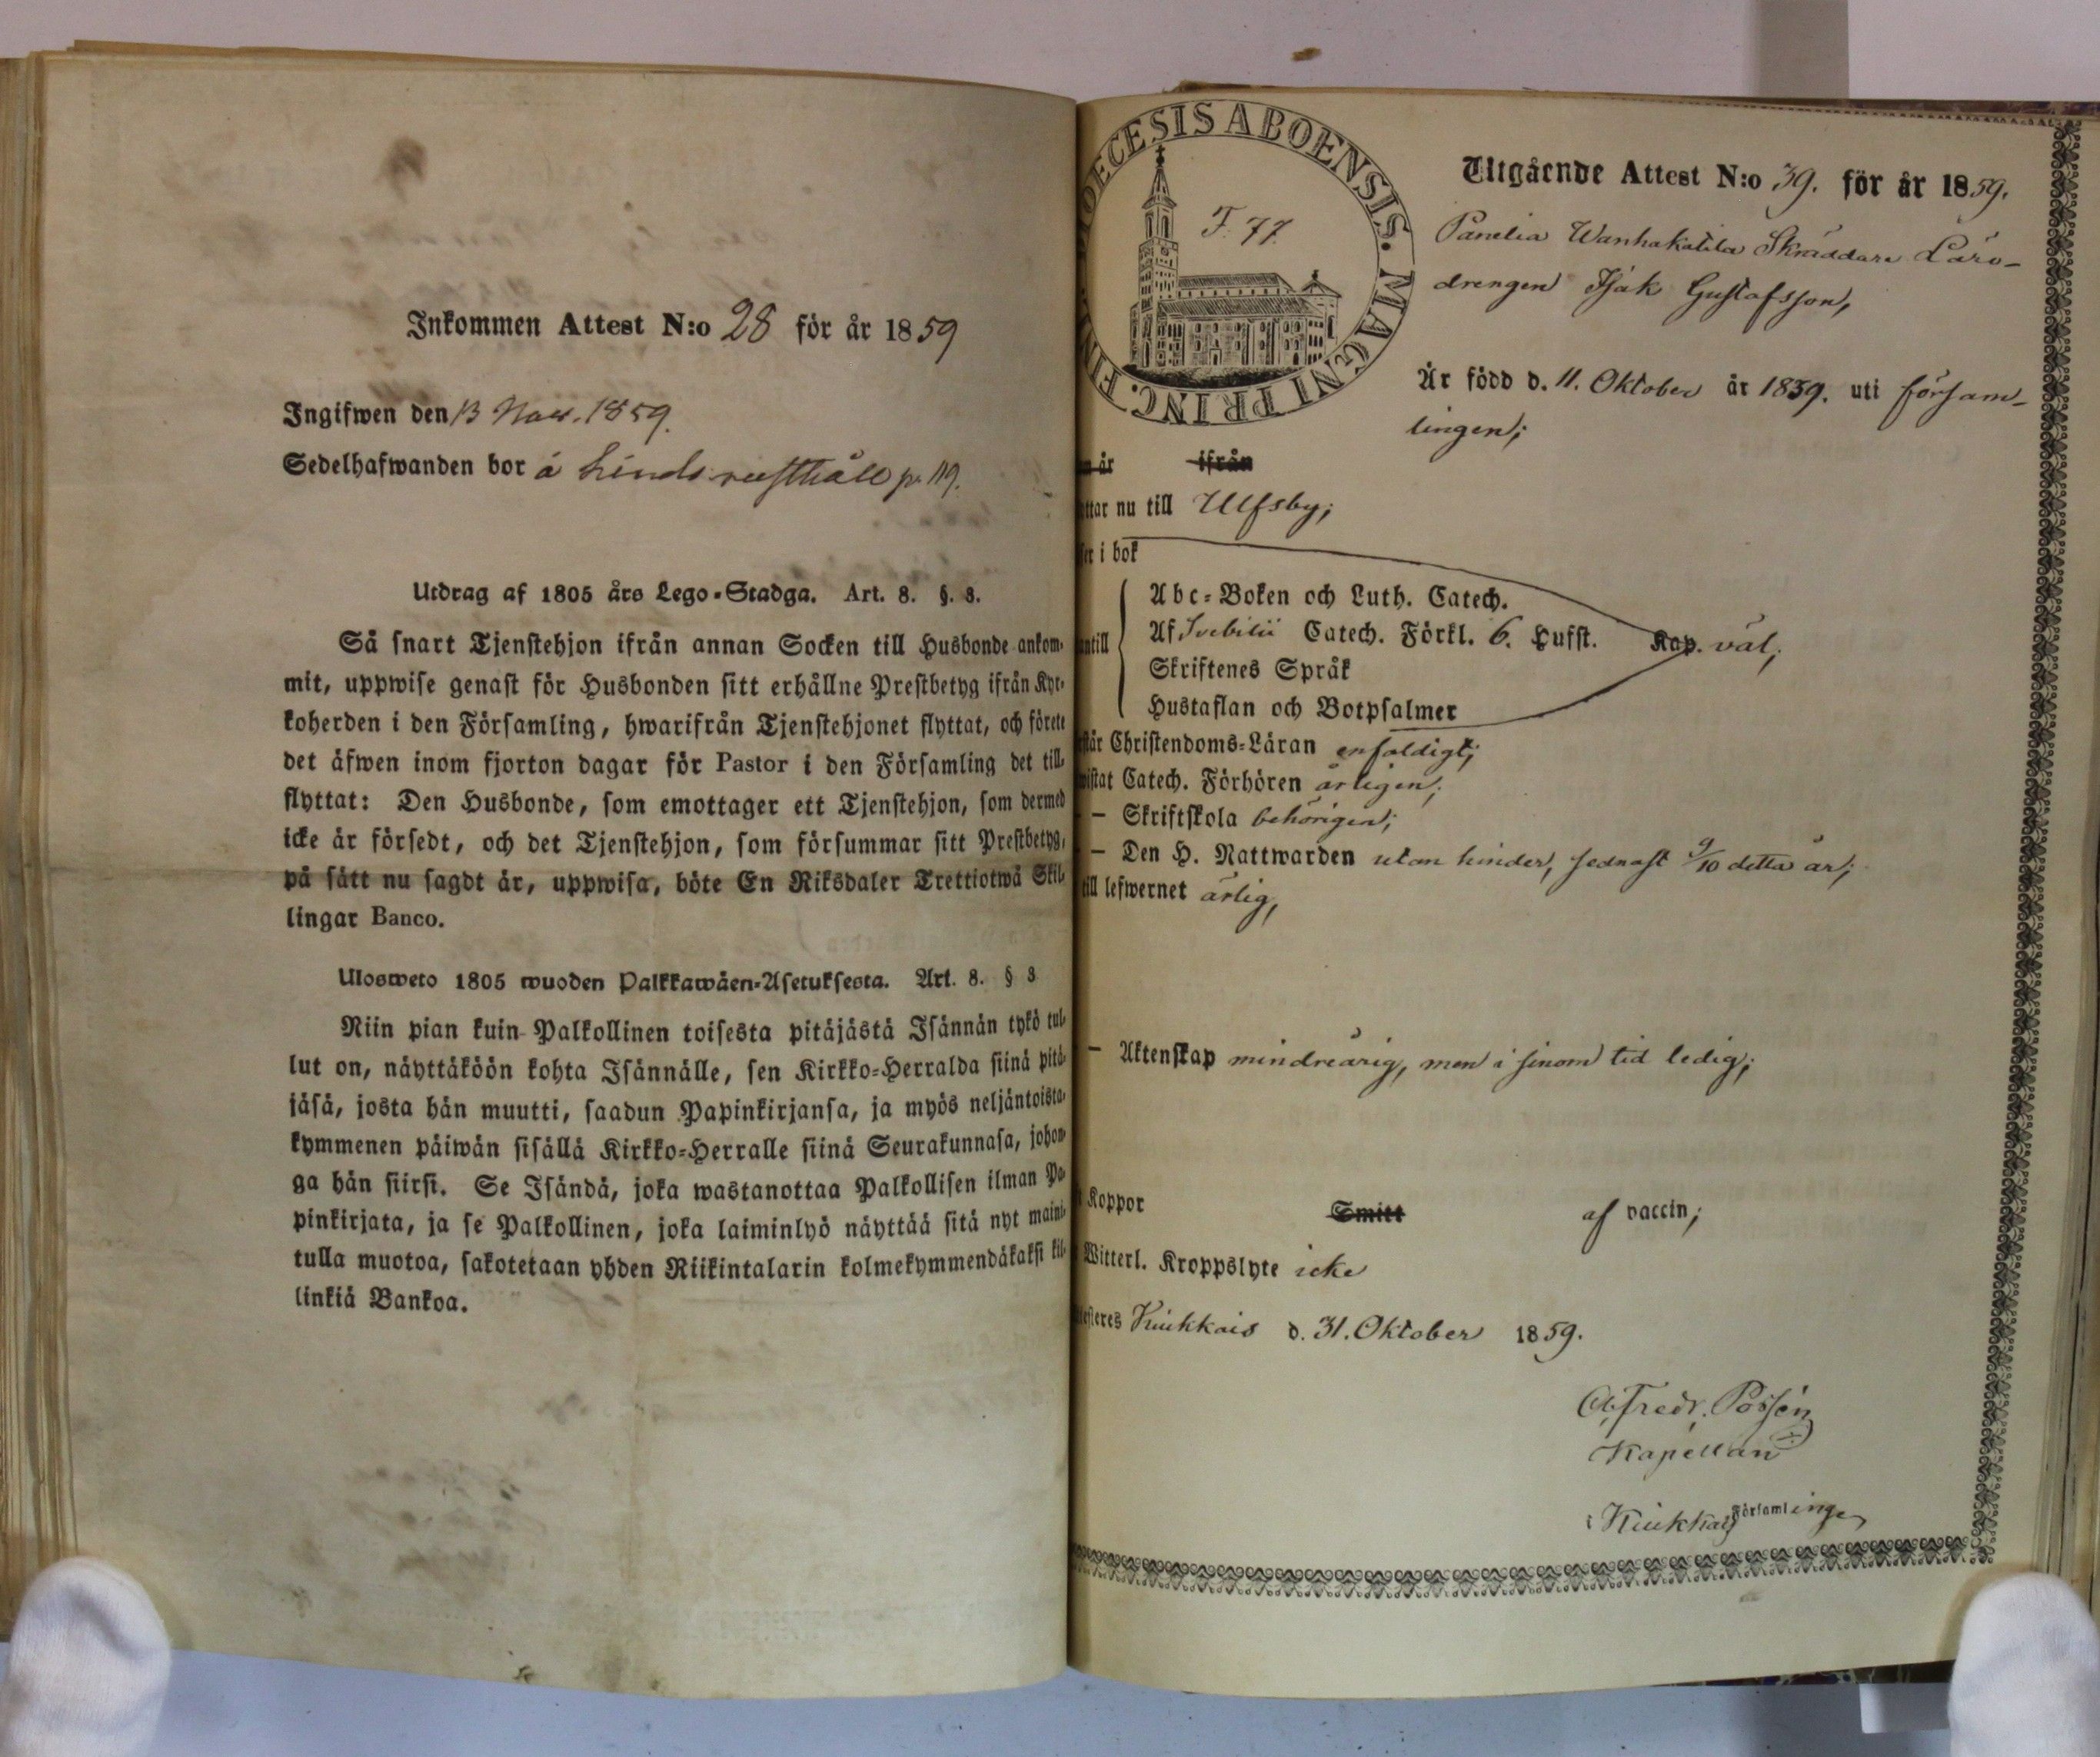 Inkommen Attest N:o 28 för år 1859
Ingifwen den 13 Nov. 1859.
Sedelhafwanden bor å Linds rusthåll p. 119.
Utdrag af 1805 års Lego-Stadga. Art. 8. §. 8.
Så snart Tjenstehjon ifrån annan Socken till Husbonde ankom-
mit, uppwise genast för Husbonden sitt erhållne Prestbetyg ifrån Kyr-
koherden i den Församling, hwarifrån Tjenstehjonet flyttat, och förete
det äfwen inom fjorton dagar för Pastor i den Församling det till-
flyttat: Den Husbonde, som emottager ett Tjenstehjon, som dermed
icke är försedt, och det Tjenstehjon, som försummar sitt Prestbetyg,
på sätt nu sagdt är, uppwisa, böte En Riksdaler Trettiotwå Skil-
lingar Banco.
Ulosweto 1805 wuoden Palkkawäen-Asetuksesta. Art. 8. § 8
Niin pian kuin Palkollinen toisesta pitäjästä Isännän tykö tul-
lut on, näyttäköön kohta Isännälle, sen Kirkko-Herralda siinä pitä-
jäsä, josta hän muutti, saadun Papinkirjansa, ja myös neljäntoista-
kymmenen päiwän sisällä Kirkko-Herralle siinä Seurakunnasa, johon-
ga hän siirsi. Se Isändä, joka wastanottaa Palkollisen ilman Pa-
pinkirjata, ja se Palkollinen, joka laiminlyö näyttää sitä nyt maini-
tulla muotoa, sakotetaan yhden Riikintalarin kolmekymmendäkaksi kil-
linkiä Bankoa.
DIOECESIS ABOENSIS. MAGNI PRINC. FINL
F. 77.
Utgående Attest N:o 39. för år 1859.
Panelia Wanhakatila Skräddare Läro-
drengen Isak Gustafsson,
Är född d. 11. Oktober år 1839. uti försam-
lingen;
år ifrån
ttar nu till Ulfsby;
i bok
Abc-Boken och Luth. Catech.
antill Af Svebilii Catech. Förkl. 6. Hufst. Kap. väl;
Skriftenes Språk
Hustaflan och Botpsalmer
står Christendoms-Läran enfaldigt;
wistat Catech. Förhören årligen;
— Skriftskola behörigen;
— Den H. Nattwarden utan hinder, sednast 9/10 detta år;
till lefwernet ärlig,
— Äktenskap mindreårig, men i sinom tid ledig;
Koppor Smitt af vaccin;
Witterl. Kroppslyte icke
testeres Kiukkais d. 31. Oktober 1859.
Fredr. Possén
Kapellan
i Kiukkais Församlinge